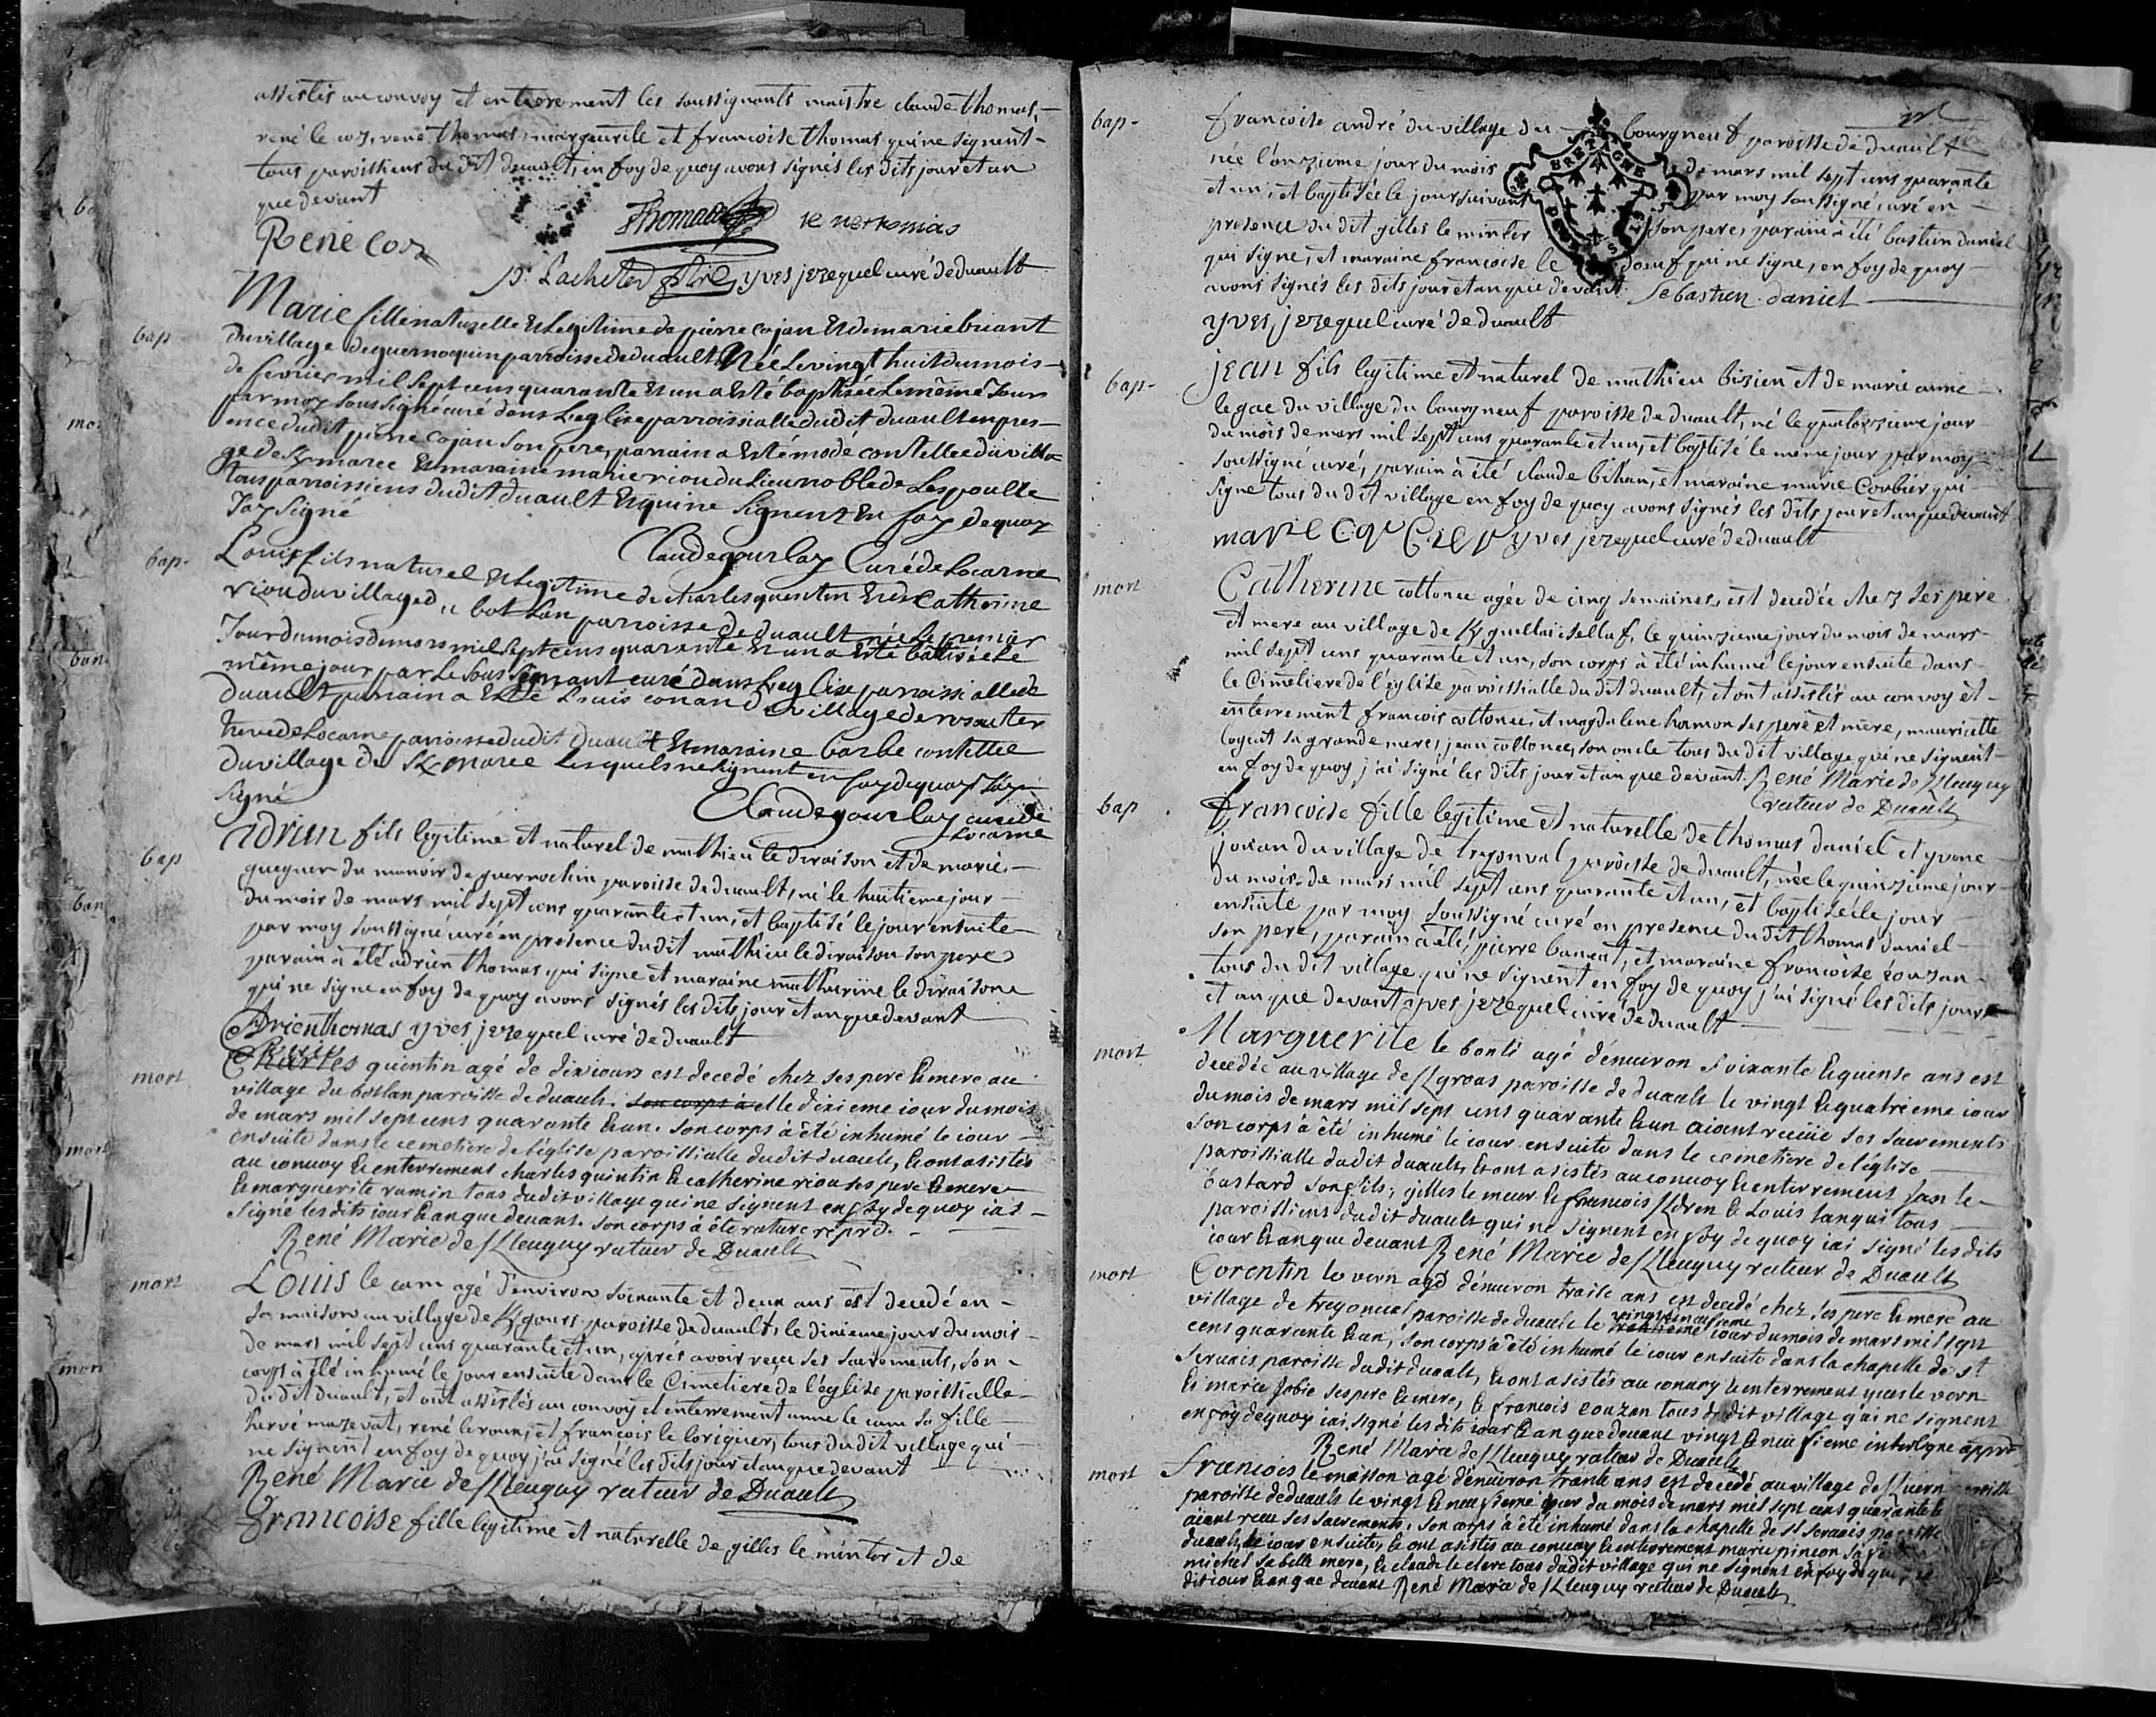 assistés au convoy et enterrement les soussignants maistre claude thomas,
rené le coz, rené thomas, marguerite et francoise thomas qui ne signent
tous paroissiens du dit duault, en foy de quoy avons signés les dits jour et an
que devant
René Coz Thomas rene thomas
yves jezequel curé de duault
bap
Marie fille naturelle et Legitime de pierre cojan et de marie briant
du village de guernoquin parroisse de duault Née Le vingt huit du mois
de fevrier mil sept cens quarante et un a esté baptisée Le même Jour
par moy sous signé curé dans L'eglise parroissialle dudit duault en pres-
ence dudit pierre cojan son pere, parrain a esté modé contellec du villa
ge de K maree et maraine marie riou du Lieu noble de Lespoulle
tous parroissiens dudit duault et qui ne signent En foy de quoy
J'ay signé
Claude gourlay Curé de Locarne
bap-
Louis fils naturel et Legitime de charles quentin et de Catherine
riou du village du bot lan parroisse de duault née Le premier
Jour du mois de mars mil sept cens quarante et un a esté batisé Le
même jour par Le sous signant curé dans L'eglise parroissialle de
duault parrain a esté Louis conan du village de rosauter
treve de Locarne parroisse dudit duault et maraine barbe contellec
du village de K maree Lesquels ne signent en foy de quoy J'ay
signé
Claude gourlay curé de
Locarne
bap
adrien fils legitime et naturel de mathieu le diraison et de marie
gueguen du manoir de guernochin paroisse de duault, né le huitieme jour
du mois de mars mil sept cens quarante et un, et baptisé le jour ensuite
par moy soussigné curé en presence du dit mathieu le diraison son pere
parain à été adrien thomas qui signe et maraine mathurine le diraison
qui ne signe en foy de quoy avons signés les dits jour et an que devant
Adrien thomas yves jezequel curé de duault
mort
Charles quintin agé de dix iours est decedé chez ses pere & mere au
village du botlan paroisse de duault. son corps à e le dixieme iour du mois
de mars mil sept cens quarante & un. son corps à été inhumé le iour
ensuite dans le cemetiere de l'église paroissialle dudit duault, & ont asistés
au convoy & enterrement charles quintin & catherine riou ses pere & mere
& marguerite ramin tous dudit village qui ne signent en foy de quoy iai
signé les dits iour & an que devant. son corps à été rature reprd.
René Marie de Kleuguy recteur de Duault
mort
Louis le cam agé d'environ soixante et deux ans est decedé en
sa maison au village de K gours paroisse de duault, le dixieme jour du mois
de mars mil sept cens quarante et un, après avoir reçu ses sacrements, son
corps à été inhumé le jour ensuite dans le Cimetiere de l'église paroissialle
du dit duault, et ont assistés au convoy et enterrement anne le cam sa fille
hervé mazevat, rené le roux, et françois le coriguer, tous du dit village qui
ne signent en foy de quoy j'ai signé les dits jour et an que devant
René Marie de Kleuguy recteur de Duault
Francoise fille legitime et naturelle de gilles le minter et de
bap-
francoise andré du village du bourgneuf paroisse de duault
née l'onzieme jour du mois de mars mil sept cens quarante
et un, et baptisée le jour suivant par moy soussigné curé en
presence du dit gilles le minter son pere, parain a été bastien daniel
qui signe, et maraine francoise le douf qui ne signe, en foy de quoy
avons signés les dits jour et an que devant Sebastien daniel
yves jezequel curé de duault
BRETAGNE
bap-
jean fils legitime et naturel de mathieu bizien et de marie anne
le gac du village du bourgneuf paroisse de duault, né le quatorzieme jour
du mois de mars mil sept cens quarante et un, et baptisé le même jour par moy
soussigné curé, parain à été claude bihan, et maraine marie Corbier qui
signe tous du dit village en foy de quoy avons signés les dits jour et an que devant
yves jezequel curé de duault
mort
Catherine cottonec agée de cinq semaines, est decedée chez ses pere
et mere au village de K guellaïsellaf, le quinzieme jour du mois de mars
mil sept cens quarante et un, son corps à été inhumé le jour ensuite dans
le Cimetiere de l'église paroissialle du dit duault, et ont assistés au convoy et
enterrement francois cottonec, et magdelene hamon ses pere et mère, mauricette
cogent sa grande mere, jean cottonec, son oncle tous du dit village qui ne signent
en foy de quoy j'ai signé les dits jour et an que devant. René Marie de Kleuguy
recteur de Duault
bap
Francoise fille legitime et naturelle de thomas daniel et yvone
jouan du village de tregonval paroisse de duault, née le quinzieme jour
du mois de mars mil sept cens quarante et un, et baptisée le jour
ensuite par moy soussigné curé en presence du dit thomas daniel
son pere, parain à été, pierre banent, et maraine francoise couzan
tous du dit village qui ne signent en foy de quoy j'ai signé les dits jour
et an que devant yves jezequel curé de duault
mort
Marguerite le bonté agé d'enuiron soixante & quense ans est
decedée au village de K groas paroisse de duault le vingt & quatrieme iour
du mois de mars mil sept cens quarante & un aiant receüe ses sacrements
son corps à été inhumé le iour ensuite dans le cemetiere de l'église
paroissialle dudit duault, & ont asistés au conuoy & enterrement jan le
bastard son fils, gilles le meur & francois Kdren & Louis tanqui tous
paroissiens dudit duault qui ne signent en foy de quoy iai signé les dits
iour & an que deuant René Marie de Kleuguy recteur de Duault
mort
Corentin le vern agé d'enuiron traise ans est decedé chez ses pere & mere au
village de tregonual paroisse de duault le vingt & neufieme iour du mois de mars mil sept
cens quarante & un, son corps à été inhumé le iour ensuite dans la chapelle de st
seruais paroisse dudit duault, & ont asistés au conuoy & enterrement yues le vern
& marie Jobic ses pere & mere, & francois couzan tous dudit village qui ne signent
en foy de quoy iai signé les dits iour & an que deuant vingt & neufieme interligne appr
René Marie de Kleuguy recteur de Duault
mort
Francois le masson agé d'enuiron trante ans est decedé au village de Kuern
paroisse de duault le vingt & neufieme iour du mois de mars mil sept cens quarante &
aiant receu ses sacrements, son corps à été inhumé dans la chapelle de st seruais paroisse
duault, le iour ensuite, & ont asistés au conuoy & enterrement marie pincon sa
michel sa belle mere, & claude le clere tous dudit village qui ne signent en foy de quoy
dit iour & an que deuant René Marie de Kleuguy recteur de Duault